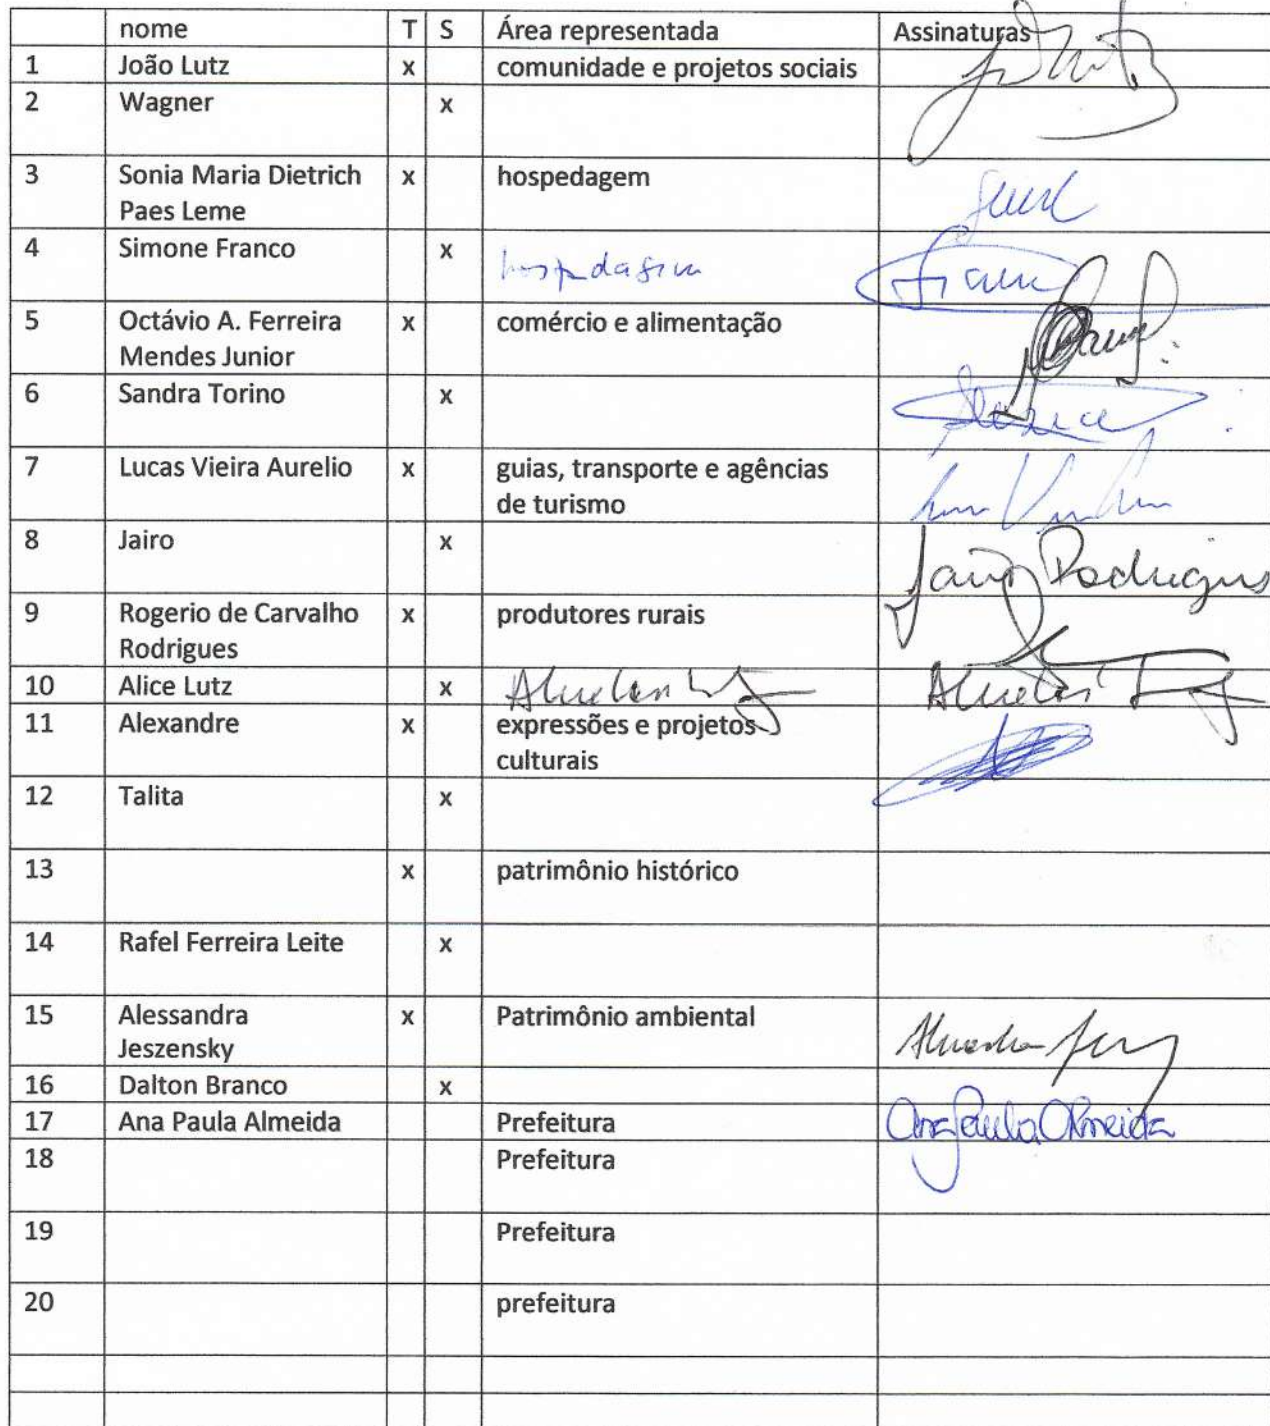 nome T S Área representada Assinaturas
1 João Lutz x comunidade e projetos sociais
2 Wagner x
3 Sonia Maria Dietrich x hospedagem
Paes Leme
4 Simone Franco x hospedagem
5 Octávio A. Ferreira x comércio e alimentação
Mendes Junior
6 Sandra Torino x
7 Lucas Vieira Aurelio x guias, transporte e agências
de turismo
8 Jairo x Jairo Rodrigues
9 Rogerio de Carvalho x produtores rurais
Rodrigues
10 Alice Lutz x
11 Alexandre x expressões e projetos
culturais
12 Talita x
13 x patrimônio histórico
14 Rafel Ferreira Leite x
15 Alessandra x Patrimônio ambiental
Jeszensky
16 Dalton Branco x
17 Ana Paula Almeida Prefeitura Ana Paula Almeida
18 Prefeitura
19 Prefeitura
20 prefeitura